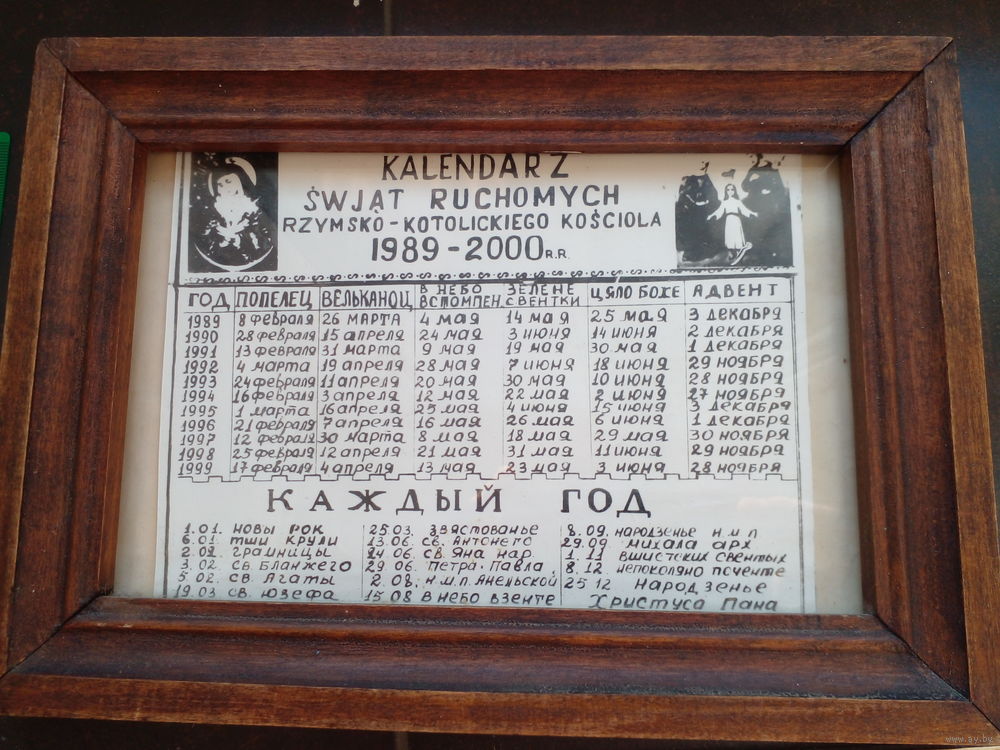 KALENDARZ
ŚWJĄT RUCHOMYCH
RZYMSKO-KOTOLICKIEGO KOŚCIOLA
1989-2000 R.R.
ГОД ПОПЕЛЕЦ ВЕЛЬКАНОЦ В НЕБО ВСТОМПЕН ЗЕЛЕНЕ СВЕНТКИ ЦЯЛО БОЖЕ АДВЕНТ
1989 8 февраля 26 МАРТА 4 мая 14 мая 25 мая 3 декабря
1990 28 февраля 15 апреля 24 мая 3 июня 14 июня 2 декабря
1991 13 февраля 31 марта 9 мая 19 мая 30 мая 1 декабря
1992 4 марта 19 апреля 28 мая 7 июня 18 июня 29 ноября
1993 24 февраля 11 апреля 20 мая 30 мая 10 июня 28 ноября
1994 16 февраля 3 апреля 12 мая 22 мая 2 июня 27 ноября
1995 1 марта 16 апреля 25 мая 4 июня 15 июня 3 декабря
1996 21 февраля 7 апреля 16 мая 26 мая 6 июня 1 декабря
1997 12 февраля 30 марта 8 мая 18 мая 29 мая 30 ноября
1998 25 февраля 12 апреля 21 мая 31 мая 11 июня 29 ноября
1999 17 февраля 4 апреля 13 мая 23 мая 3 июня 28 ноября
КАЖДЫЙ ГОД
1.01. НОВЫ РОК
6.01. ТШИ КРУЛИ
2.02. ГРАМНИЦЫ
3.02. СВ. БЛАНЖЕГО
5.02. СВ. АГАТЫ
19.03 СВ. ЮЗЕФА
25.03. ЗВЯСТОВАНЬЕ
13.06. СВ. АНТОНЕГО
24.06. СВ. ЯНА НАР.
29.06. ПЕТРА·ПАВЛА
2.08. Н.М.П. АНЕЛЬСКОЙ
15.08 В НЕБО ВЗЕНТЕ
8.09. НАРОДЗЕНЬЕ Н М П
29.09. МИХАЛА АРХ
1.11 ВШИСТСКИХ СВЕНТЫХ
8.12 НЕПОКОЛЯНО ПОЧЕНТЕ
25 12 НАРОДЗЕНЬЕ
ХРИСТУСА ПАНА
www.ay.by